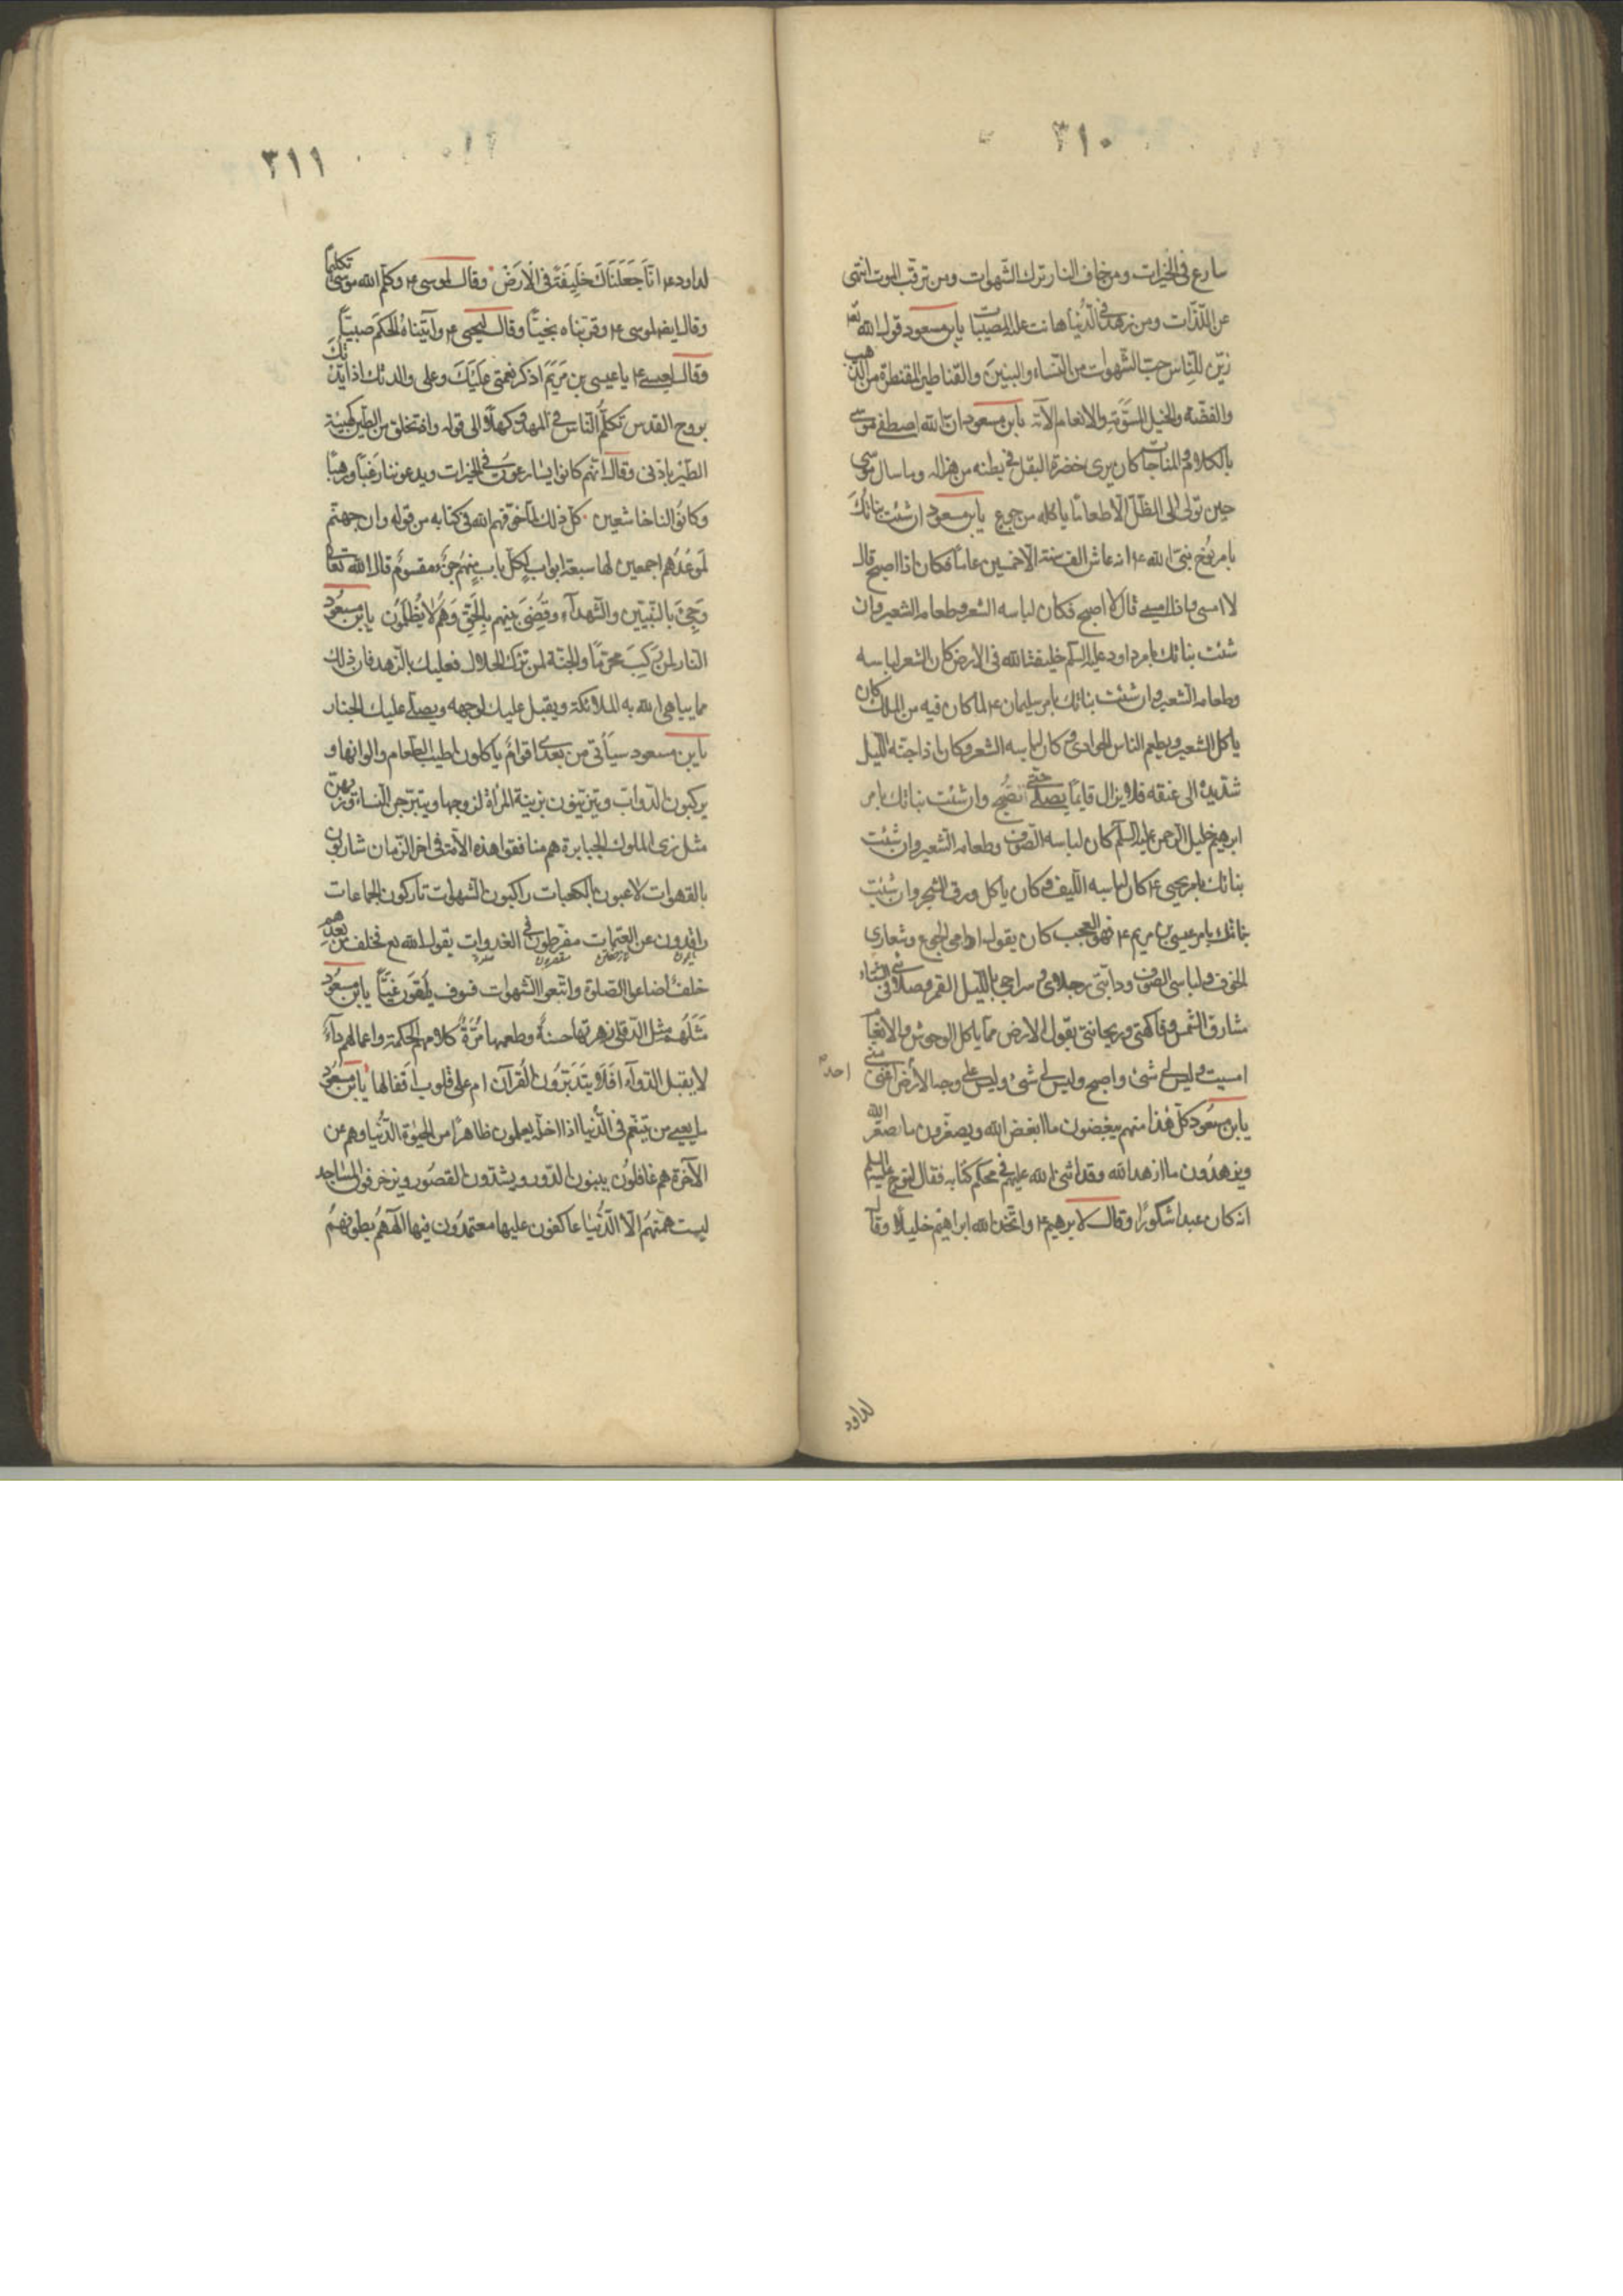 ٣١٠
سارع فى الخيرات ومن خاف النار ترك الشهوات ومن ترقب الموت انتهى
عن اللذات ومن زهد فى الدنيا هانت عليه المصيبات يابن مسعود قول الله تعا
زين للناس حب الشهوات من النساء والبنين والقناطير المقنطرة من الذهب
والفضة والخيل المسومة والانعام الآية يابن مسعود ان الله اصطفى موسى
بالكلام والمناجات كان يرى خضرة البقل فى بطنه من هزاله وما سال موسى
حين تولى الى الظل الا طعاما ياكله من جوع يابن مسعود ان شئت نباتك
بامر نوح نبى الله ع انه عاش الف سنة الا خمسين عاما فكان اذا اصبح قال
لا امسى واذا امسى قال لا اصبح فكان لباسه الشعر وطعامه الشعير وان
شئت نباتك بامر داود عليه السلم خليفة الله فى الارض كان الشعر لباسه
وطعامه الشعير وان شئت نباتك بامر سليمان ع لما كان فيه من الملك كان
ياكل الشعير ويطعم الناس الحوادى وكان لباسه الشعر وكان اذا جنه الليل
شد يده الى عنقه فلا يزال قايما يصلى حتى يصبح وان شئت نباتك بامر
ابرهيم خليل الرحمن عليه السلم كان لباسه الصوف وطعامه الشعير وان شئت
نباتك بامر يحيى ع كان لباسه الليف وكان ياكل ورق الشجر وان شئت
نباتك بامر عيسى بن مريم ع فهو العجب كان يقول ادامى الجوع وشعارى
الخوف ولباسى الصوف ودابتى رجلاى وسراجى بالليل القمر وصلائى فى الشتاء
مشارق الشمس وفاكهتى وريحانتى بقول الارض مما ياكل الوحوش والانعام
امسيت وليس لى شئ واصبح وليس لى شئ وليس على وجه الارض اغنى منى
احد
يابن مسعود كل هذا منهم يبغضون ما ابغض الله ويصغرون ما صغر الله
ويزهدون ما ازهد الله وقد اثنى الله عليهم فى محكم كتابه فقال لنوح عليه السلم
انه كان عبدا شكورا وقال لابرهيم ع واتخذ الله ابراهيم خليلا وقال
لداود
٣١١
لداود ع انا جعلناك خليفة فى الارض وقال لموسى ع وكلم الله موسى تكليما
وقال ايضا لموسى ع وقربناه نجيا وقال ليحيى ع وآتيناه الحكم صبيا
وقال لعيسى ع يا عيسى بن مريم اذكر نعمتى عليك وعلى والدتك اذ ايدتك
بروح القدس تكلم الناس فى المهد وكهلا الى قوله واذ تخلق من الطين كهيئة
الطير باذنى وقال انهم كانوا يسارعون فى الخيرات ويدعوننا رغبا ورهبا
وكانوا لنا خاشعين كل ذلك لما خوفهم الله فى كتابه من قوله وان جهنم
لموعدهم اجمعين لها سبعة ابواب لكل باب منهم جزء مقسوم قال الله تعالى
وجئ بالنبيين والشهداء وقضى بينهم بالحق وهم لا يظلمون يابن مسعود
النار لمن ركب محرما والجنة لمن ترك الحلال فعليك بالزهد فان ذلك
مما يباهى الله به الملائكة ويقبل عليك لوجهه ويصلى عليك الجبار
يابن مسعود سيأتى من بعدى اقوام ياكلون اطيب الطعام والوانها و
يركبون الدواب ويتزينون بزينة المرأة لزوجها ويتبرجن النساء وزيهن
مثل زى الملوك الجبابرة هم منافقوا هذه الامة فى اخر الزمان شاربون
بالقهوات لاعبون بالكعبات راكبون الشهوات تاركون الجماعات
راقدون عن العتمات مفرطون فى الغدوات يقول الله تع فخلف من بعدهم
خلف اضاعوا الصلوة واتبعوا الشهوات فسوف يلقون غيا يابن مسعود
مثلهم مثل الدفلى زهرتها حسنة وطعمها مرة كلامهم الحكمة واعمالهم داء
لا يقبل الدواء افلا يتدبرون القرآن ام على قلوب اقفالها يابن مسعود
ما يغنى من يتنعم فى الدنيا اذا اخلد يعلمون ظاهرا من الحيوة الدنيا وهم عن
الآخرة هم غافلون يبنون الدور ويشدون القصور ويزخرفون المساجد
ليست همتهم الا الدنيا عاكفون عليها معتمدون فيها آلهتهم بطونهم